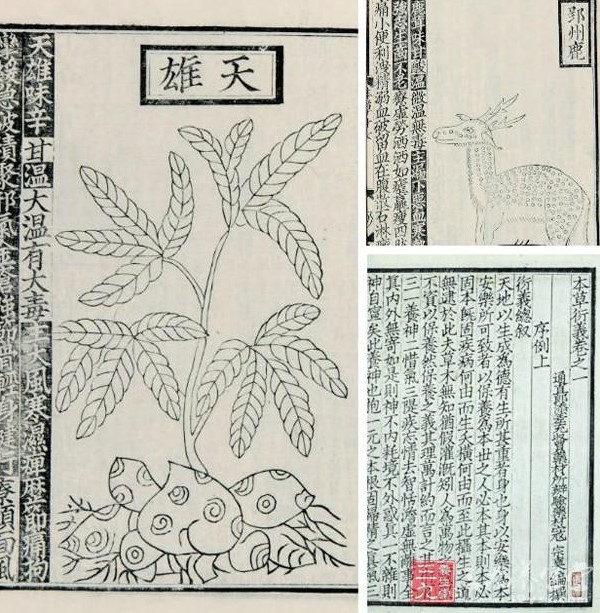 天雄
天雄味辛甘温大温有大毒主大風寒濕痺歷節痛拘
攣緩急破積聚邪氣金瘡強筋骨輕身健行療頭面風
郢州鹿
鹿茸味甘酸温微温無毒主漏下惡血寒熱
強志生齒不老療虛勞洒洒如瘧羸瘦四肢
痛小便利洩精溺血破留血在腹散石淋
本草衍義卷之一
通直郎添差充收買藥材所辨驗藥材寇 宗奭 編撰
序例上
衍義總叙
天地以生成為德有生所甚重者身也身以安樂為本
安樂所可致者以保養為本世之人必本其本則本必
固本既固疾病何由而生夭橫何由而至此攝生之道
無逮於此夫草木無知猶假灌漑矧人為萬物
不資以保養然保養之義其理萬計約而言之其
三一養神二惜氣三隄疾忘情去智恬憺虛無離事全
其内外無寄如是則神不内耗境不外惑真一不雜則
神自寧矣此養神也抱一元之本根固歸精之真氣三